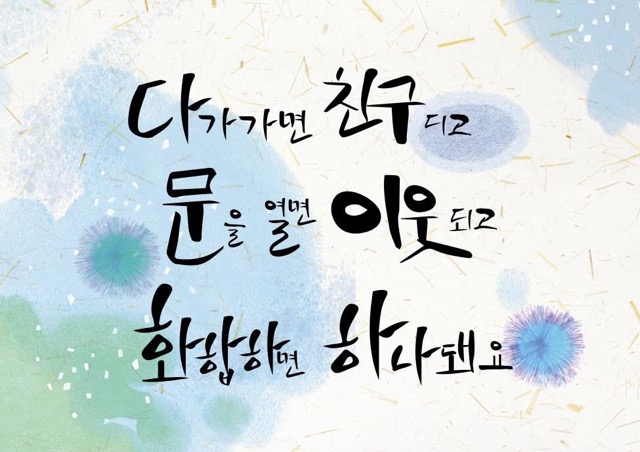 다가가면 친구 디고
문을 열면 이웃 되고
화합하면 하나돼요